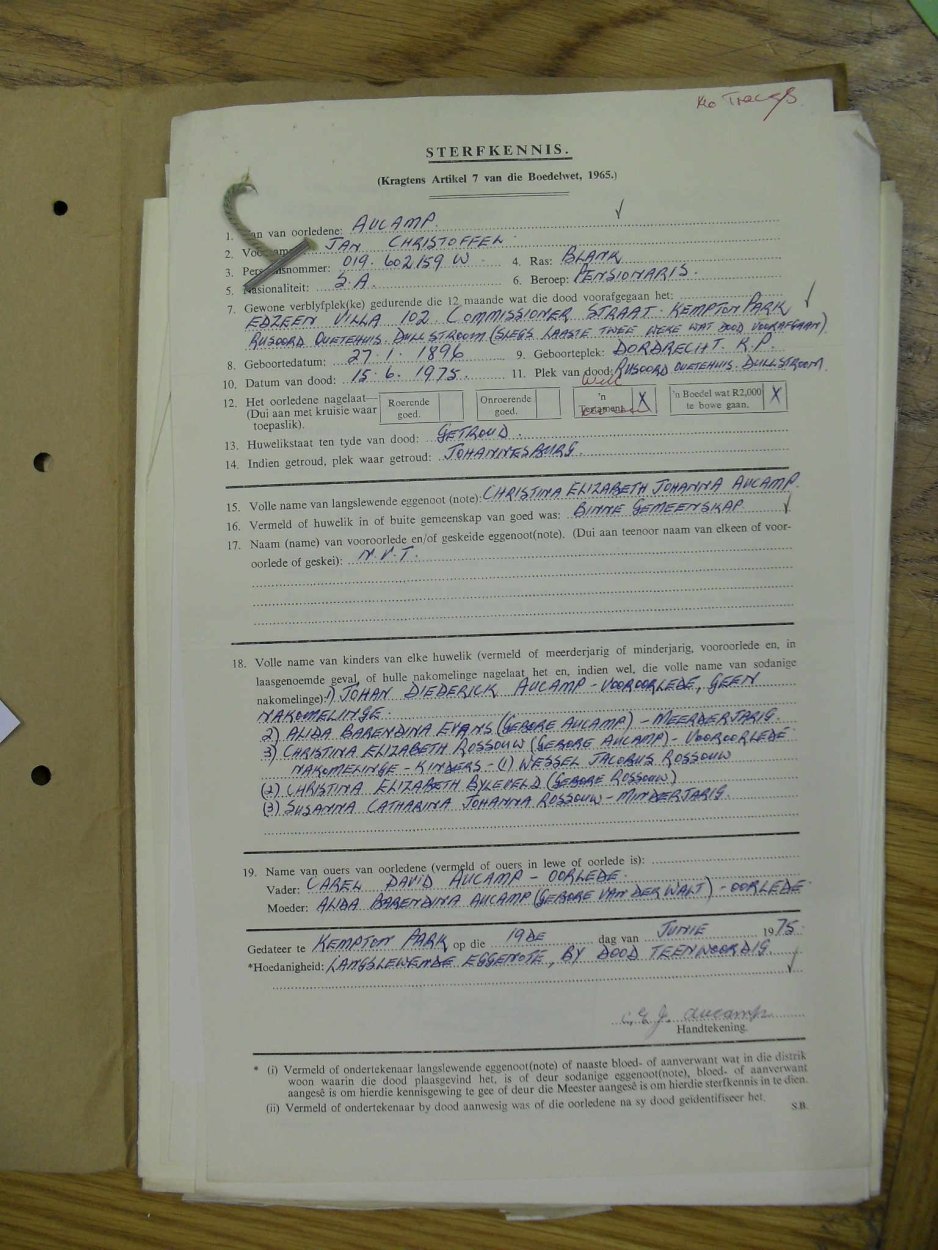 No Traces
STERFKENNIS.
(Kragtens Artikel 7 van die Boedelwet, 1965.)
1. Van van oorledene: AUCAMP.
2. JAN CHRISTOFFEL
3. Persoonsnommer: 019.602159 W 4. Ras: BLANK
5. Nasionaliteit: S.A. 6. Beroep: PENSIONARIS.
7. Gewone verblyfplek(ke) gedurende die 12 maande wat die dood voorafgegaan het:
EDZEEN VILLA 102 COMMISSIONER STRAAT. KEMPTON PARK
RUSOORD OUETEHUIS. DULLSTROOM (SLEGS LAASTE TWEE WEKE WAT DOOD VOORAFGAAN)
8. Geboortedatum: 27.1.1896 9. Geboorteplek: DORDRECHT. K.P.
10. Datum van dood: 15.6.1975. 11. Plek van dood: RUSOORD OUETEHUIS. DULLSTROOM.
Will
12. Het oorledene nagelaat— (Dui aan met kruisie waar toepaslik). Roerende goed. Onroerende goed. 'n Testament. X 'n Boedel wat R2,000 te bowe gaan. X
13. Huwelikstaat ten tyde van dood: GETROUD.
14. Indien getroud, plek waar getroud: JOHANNESBURG.
15. Volle name van langslewende eggenoot (note): CHRISTINA ELIZABETH JOHANNA AUCAMP.
16. Vermeld of huwelik in of buite gemeenskap van goed was: BINNE GEMEENSKAP.
17. Naam (name) van vooroorlede en/of geskeide eggenoot(note). (Dui aan teenoor naam van elkeen of voor-
oorlede of geskei): N.V.T.
18. Volle name van kinders van elke huwelik (vermeld of meerderjarig of minderjarig, vooroorlede en, in
laasgenoemde geval, of hulle nakomelinge nagelaat het en, indien wel, die volle name van sodanige
nakomelinge): 1) JOHAN DIEDERICK AUCAMP - VOOROORLEDE, GEEN
NAKOMELINGE
2) ALIDA BARENDINA EVANS (GEBORE AUCAMP) - MEERDERJARIG.
3) CHRISTINA ELIZABETH ROSSOUW (GEBORE AUCAMP) - VOOROORLEDE
NAKOMELINGE - KINDERS - (1) WESSEL JACOBUS ROSSOUW
(2) CHRISTINA ELIZABETH BYLEVELD (GEBORE ROSSOUW)
(3) SUSANNA CATHARINA JOHANNA ROSSOUW - MINDERJARIG.
19. Name van ouers van oorledene (vermeld of ouers in lewe of oorlede is):
Vader: CAREL DAVID AUCAMP - OORLEDE.
Moeder: ALIDA BARENDINA AUCAMP (GEBORE VAN DER WALT) - OORLEDE
Gedateer te KEMPTON PARK op die 19DE dag van JUNIE 1975.
*Hoedanigheid: LANGSLEWENDE EGGENOTE, BY DOOD TEENWOORDIG.
C.E.J. Aucamp
Handtekening.
* (i) Vermeld of ondertekenaar langslewende eggenoot(note) of naaste bloed- of aanverwant wat in die distrik
woon waarin die dood plaasgevind het, is of deur sodanige eggenoot(note), bloed- of aanverwant
aangesê is om hierdie kennisgewing te gee of deur die Meester aangesê is om hierdie sterfkennis in te dien.
(ii) Vermeld of ondertekenaar by dood aanwesig was of die oorledene na sy dood geïdentifiseer het.
S.B.